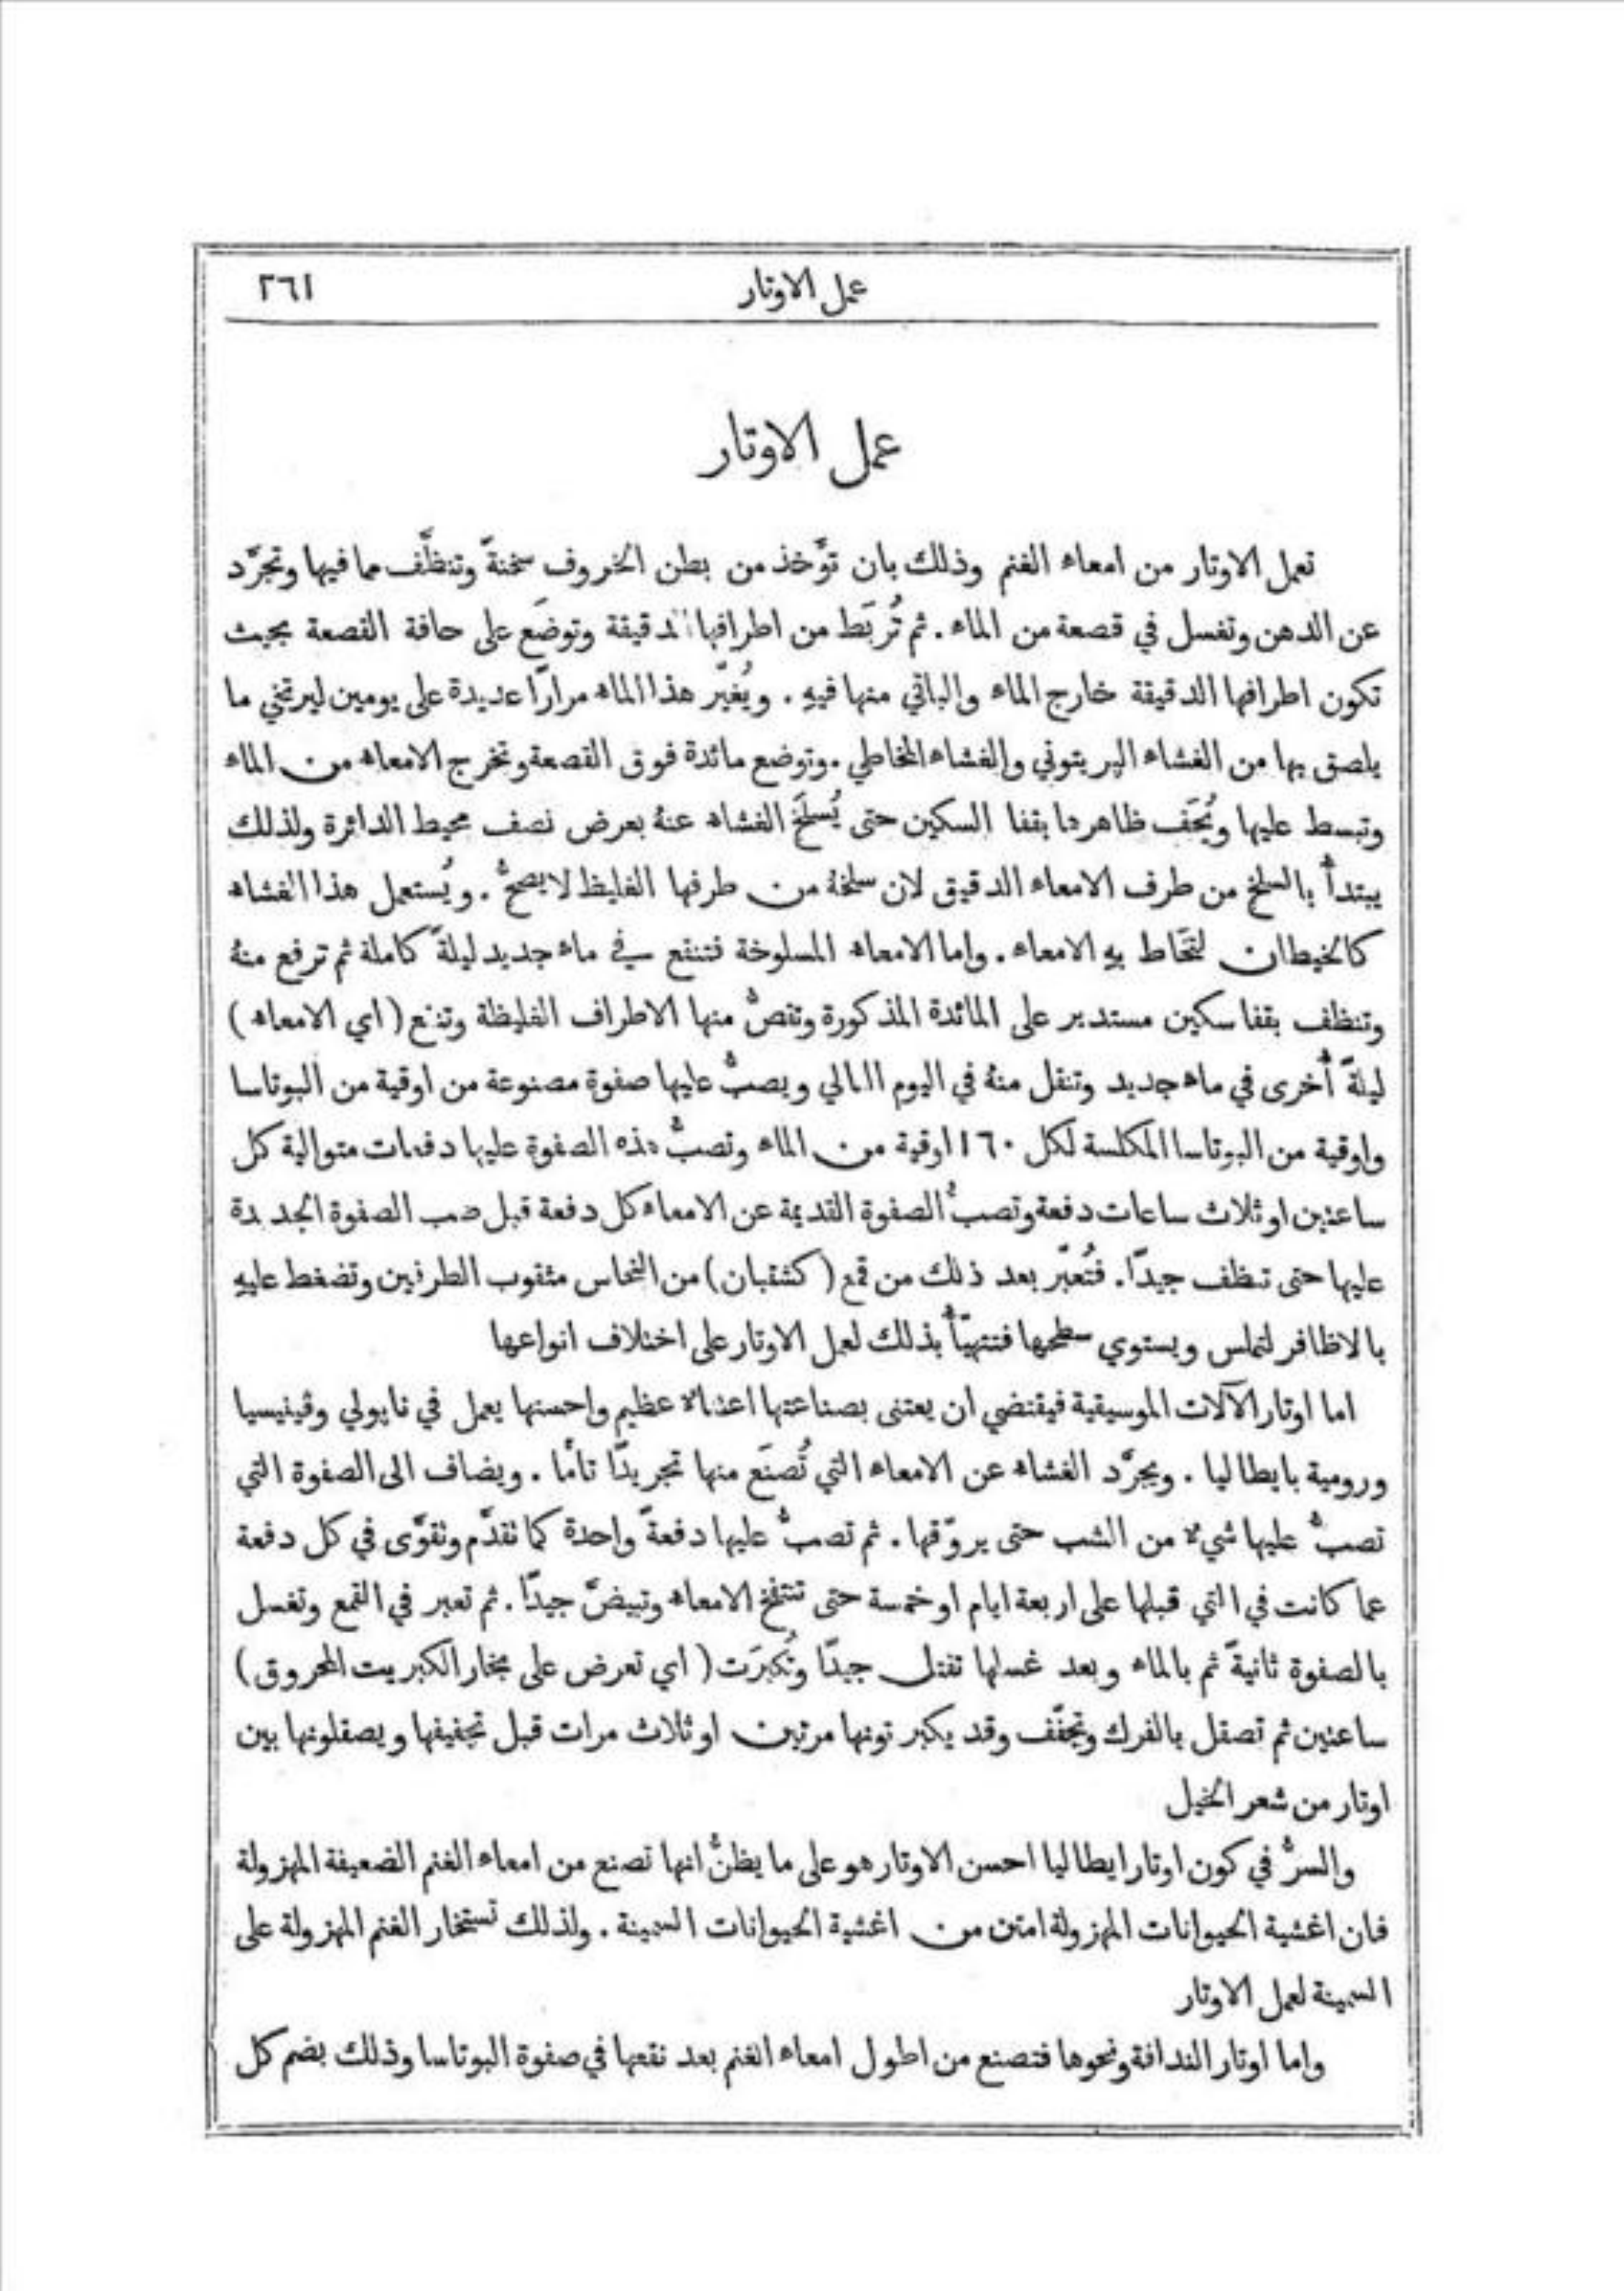 عمل الاوتار ٢٦١
عمل الاوتار
تعمل الاوتار من امعاء الغنم وذلك بان تؤخذ من بطن الخروف سخنةً وتنظَّف مما فيها وتجرَّد
عن الدهن وتغسل في قصعة من الماء . ثم تُربَط من اطرافها الدقيقة وتوضَع على حافة القصعة بحيث
تكون اطرافها الدقيقة خارج الماء والباقي منها فيهِ . ويُغيَّر هذا الماء مرارًا عديدة على يومين ليرتخي ما
يلصق بها من الغشاء البريتوني والغشاء المخاطي . وتوضع مائدة فوق القصعة وتخرج الامعاء من الماء
وتبسط عليها ويُحَف ظاهرها بقفا السكين حتى يُسلَخ الغشاء عنهُ بعرض نصف محيط الدائرة ولذلك
يبتدأُ بالسلخ من طرف الامعاء الدقيق لان سلخهُ من طرفها الغليظ لا يصحُّ . ويُستعمل هذا الغشاء
كالخيطان لتخَاط بهِ الامعاء . واما الامعاء المسلوخة فتنقع في ماء جديد ليلةً كاملة ثم ترفع منهُ
وتنظف بقفا سكين مستدير على المائدة المذكورة وتقصُّ منها الاطراف الغليظة وتنقع ( اي الامعاء )
ليلةً أُخرى في ماء جديد وتنقل منهُ في اليوم التالي ويصبُّ عليها صفوة مصنوعة من اوقية من البوتاسا
واوقية من البوتاسا المكلسة لكل ١٦٠ اوقية من الماء وتصبُّ هذه الصفوة عليها دفعات متوالية كل
ساعتين او ثلاث ساعات دفعة وتصبُّ الصفوة القديمة عن الامعاء كل دفعة قبل صب الصفوة الجديدة
عليها حتى تنظف جيدًا . فتُعبَّر بعد ذلك من قمع ( كشتبان ) من النحاس مثقوب الطرفين وتضغط عليهِ
بالاظافر لتملس ويستوي سطحها فتتهيَّأُ بذلك لعمل الاوتار على اختلاف انواعها
اما اوتار الآلات الموسيقية فيقتضي ان يعتنى بصناعتها اعتناءٌ عظيم واحسنها يعمل في نابولي وڤينيسيا
ورومية بايطاليا . ويجرَّد الغشاء عن الامعاء التي تُصنَع منها تجريدًا تامًّا . ويضاف الى الصفوة التي
تصبُّ عليها شيءٌ من الشب حتى يروّقها . ثم تصبُّ عليها دفعةً واحدة كما تقدَّم وتقوَّى في كل دفعة
عما كانت في التي قبلها على اربعة ايام او خمسة حتى تنتفخ الامعاء وتبيضَّ جيدًا . ثم تعبر في القمع وتغسل
بالصفوة ثانيةً ثم بالماء وبعد غسلها تفتل جيدًا وتُكبرَت ( اي تعرض على بخار الكبريت المحروق )
ساعتين ثم تصقل بالفرك وتجفَّف وقد يكبرتونها مرتين او ثلاث مرات قبل تجفيفها ويصقلونها بين
اوتار من شعر الخيل
والسرُّ في كون اوتار ايطاليا احسن الاوتار هو على ما يظنُّ انها تصنع من امعاء الغنم الضعيفة المهزولة
فان اغشية الحيوانات المهزولة امتن من اغشية الحيوانات السمينة . ولذلك تستخار الغنم المهزولة على
السمينة لعمل الاوتار
واما اوتار الندافة ونحوها فتصنع من اطول امعاء الغنم بعد نقعها في صفوة البوتاسا وذلك بضم كل